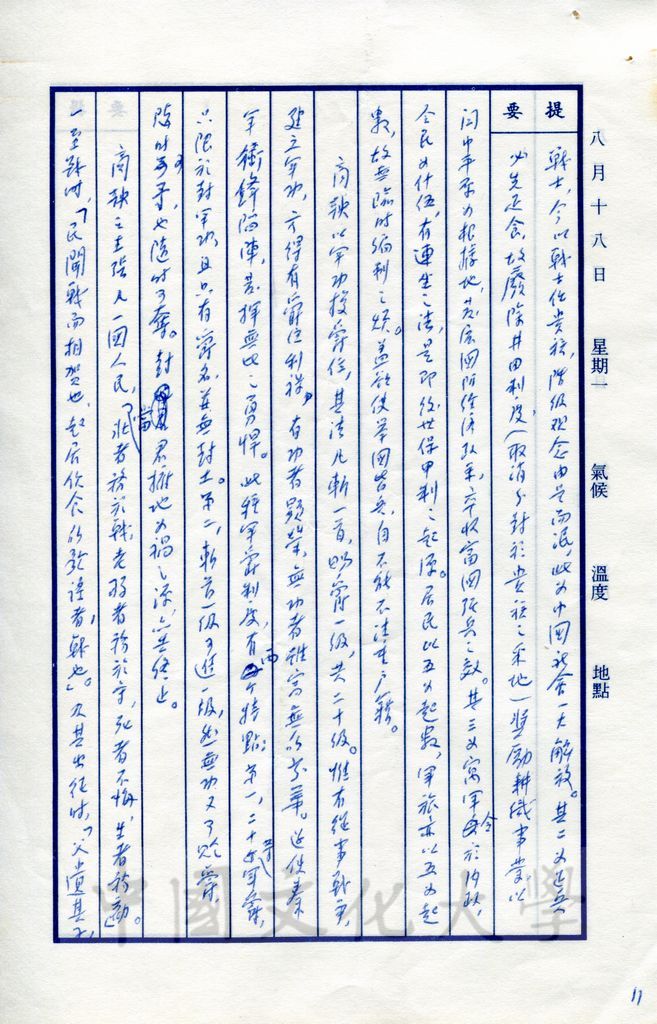 八月十八日 星期一 氣候 溫度 地點
提要
戰士，今以戰士作貴族，階級观念由是而泯，此为中國社會一大解放。其二为足兵
必先足食，故廢除井田制度（取消分封於貴族之采地）獎勵耕織事業，以
関中平原为根據地，发展国防经济政策，卒收富囯强兵之效。其三为寓軍令於內政，
令民为什伍，有連坐之法，是即後世保甲制之起源。居民以五为起數，軍旅亦以五为起
數，故無臨時編制之煩。蓋欲使舉國皆兵，自不能不注重户籍。
商鞅以軍功授爵位，其法凡斬一首，賜爵一級，共二十級。惟有從事戰爭，
建立軍功，方得有爵位利祿，有功者顯榮，無功者雖富無所芬華。遂使秦
軍衝鋒陷陣，发揮無比之勇悍。此種軍爵制度，有兩个特點：第一，二十等軍爵，
只限於封軍功，且只有爵名，並無封土。第二，斬首一级可進一级，然無功又可貶爵，
隨時可予，也隨時可奪。封君擁地为禍之源，亦告终止。
商鞅之主張凡一國人民，「當壯者務於戰，老弱者務於守，死者不悔，生者務勸」
一至戰时，「民聞戰而相賀也，起居飲食所歌謠者，戰也」。及其出征时，「父遺其子，
11
中國文化大學